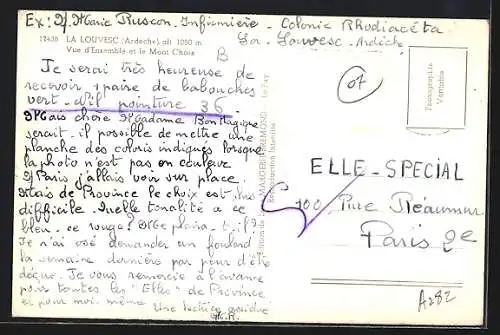 Ex: Marie Ruscon. Infirmière - Colonie Rhodiacéta
Louvesc. Ardèche
17438 LA LOUVESC (Ardèche) alt. 1050 m.
Vue d'Ensemble et le Mont Chaix
B
07
Je serai très heureuse de
recevoir 1 paire de babouches
vert-d'il pointure 36
Mais chère Madame Bon Magique
serait-il possible de mettre une
planche des coloris indiqués lorsque
la photo n'est pas en couleur.
A Paris j'allais voir sur place.
Mais de Province le choix est plus
difficile. Quelle tonalité a ce
bleu, ce rouge? Me plaira-t-il?
Je n'ai osé demander un foulard
la semaine dernière par peur d'être
déçue. Je vous remercie à l'avance
pour toutes les "Elles" de Province
et pour moi même
Une lectrice assidue
M.R.
Reproduction Interdite
Photographie
Véritable
ELLE-SPECIAL
100 Rue Réaumur
Paris 2e
A282